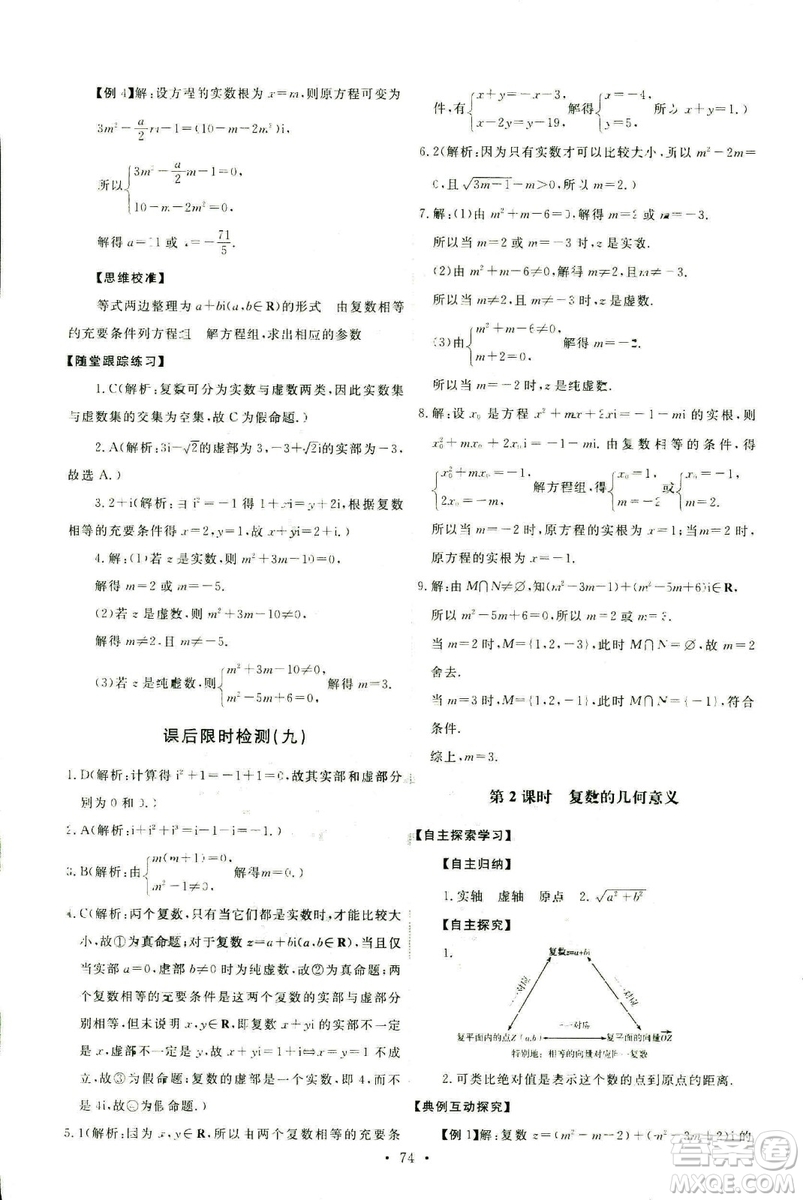 【例 4】解:设方程的实数根为 x=m,则原方程可变为
3m²-a/2 m-1=(10-m-2m²)i,
所以{3m²-a/2 m-1=0,
10-m-2m²=0,
解得 a=11 或 a=-71/5.
【思维校准】
等式两边整理为 a+bi(a,b∈R)的形式 由复数相等
的充要条件列方程组 解方程组,求出相应的参数
【随堂跟踪练习】
1.C(解析:复数可分为实数与虚数两类,因此实数集
与虚数集的交集为空集,故 C 为假命题.)
2.A(解析:3i-√2的虚部为 3,-3+√2i的实部为-3,
故选 A.)
3.2+i(解析:由 i²=-1 得 1+xi=y+2i,根据复数
相等的充要条件得 x=2,y=1,故 x+yi=2+i.)
4.解:(1)若 z 是实数,则 m²+3m-10=0,
解得 m=2 或 m=-5.
(2)若 z 是虚数,则 m²+3m-10≠0,
解得 m≠2 且 m≠-5.
(3)若 z 是纯虚数,则{m²+3m-10≠0,
m²-5m+6=0, 解得 m=3.
课后限时检测(九)
1.D(解析:计算得 i²+1=-1+1=0,故其实部和虚部分
别为 0 和 0.)
2.A(解析:i+i²+i³=i-1-i=-1.)
3.B(解析:由{m(m+1)=0,
m²-1≠0, 得 m=0.)
4.C(解析:两个复数,只有当它们都是实数时,才能比较大
小,故①为真命题;对于复数 z=a+bi(a,b∈R),仅当
当实部 a=0,虚部 b≠0 时为纯虚数,故②为真命题;两
个复数相等的充要条件是两个复数的实部和虚部分别
相等,但未说明 x,y∈R,即复数 x+yi 的实部不一定
是 x,虚部不一定是 y,故 x+yi=1+i⇔x=y=1 不一定
成立,故③为假命题;复数的平方不一定大于 0,故④为
假命题.)
5.1(解析:由 x,y∈R,所以由两个复数相等的充要条
件,有{x+y=x+y,
x-2y=y-19, 解得

件,有{x+y=
x-2y=y-19, 解得{x=
y=5. )
6.2(解析:因为只有实数才可以比较大小,所以 m²-2m=
0,且√3m-1-m>0,所以 m=2.)
7.解:(1)由 m²+m-6=0,解得 m=2 或 m=-3.
所以当 m=2 或 m=-3 时,z 是实数.
(2)由 m²+m-6≠0,解得 m≠2 且 m≠-3.
所以当 m≠2 且 m≠-3 时,z 是虚数.
(3)由{m²+m-6≠0,
解得
所以当 时,z 是纯虚数.
8.解:设 x₀ 是方程 x²+mx+2xi=-1-mi 的实根,则
x₀²+mx₀+2x₀i=-1-mi. 由复数相等的条件,得
{x₀²+mx₀=-1,
2x₀=-m, 解方程组,得
所以当 m=-2 时,原方程的实根为 x=1,当 m=2 时,
原方程的实根为 x=-1.
9.解:由 M∩N≠∅,知(m²-3m-1)+(m²-5m+6)i∈R,
所以 m²-5m+6=0,解得 m=2 或 m=3.
当 m=2 时,M={1,2,-3},此时 M∩N=∅,故 m=2
舍去.
当 m=3 时,M={1,2,-1},此时 M∩N={-1},符合
条件.
综上,m=3.
第 2 课时 复数的几何意义
【自主探索学习】
【自主归纳】
1.实轴 虚轴 原点 2.√a²+b²
【自主探究】
1.
复数z=a+bi
一一对应
一一对应
一一对应
复平面内的点Z(a,b)
复平面的向量OZ
特别地:相等的向量对应同一复数
2.可类比绝对值是表示这个数的点到原点的距离.
【典例互动探究】
【例 1】解:复数 z=(m²-m-2)+(m²-3m+2)i 的
74
答案圈
MXQE.COM